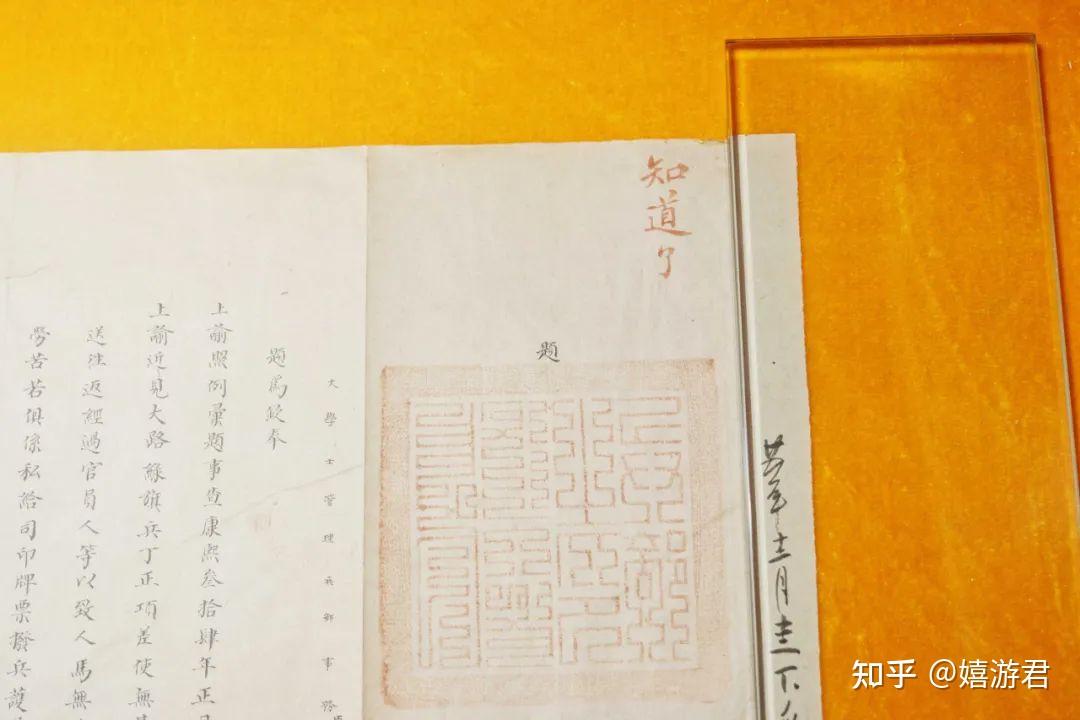 知道了
題
大學士管理兵部事務
題為欽奉
上諭照例彙題事查康熙叁拾肆年正
上諭近見大路綠旗兵丁正項差使無
送往返經過官員人等以致人馬無
勞苦若俱係私給司印牌票撥兵護
知乎 @嬉游君